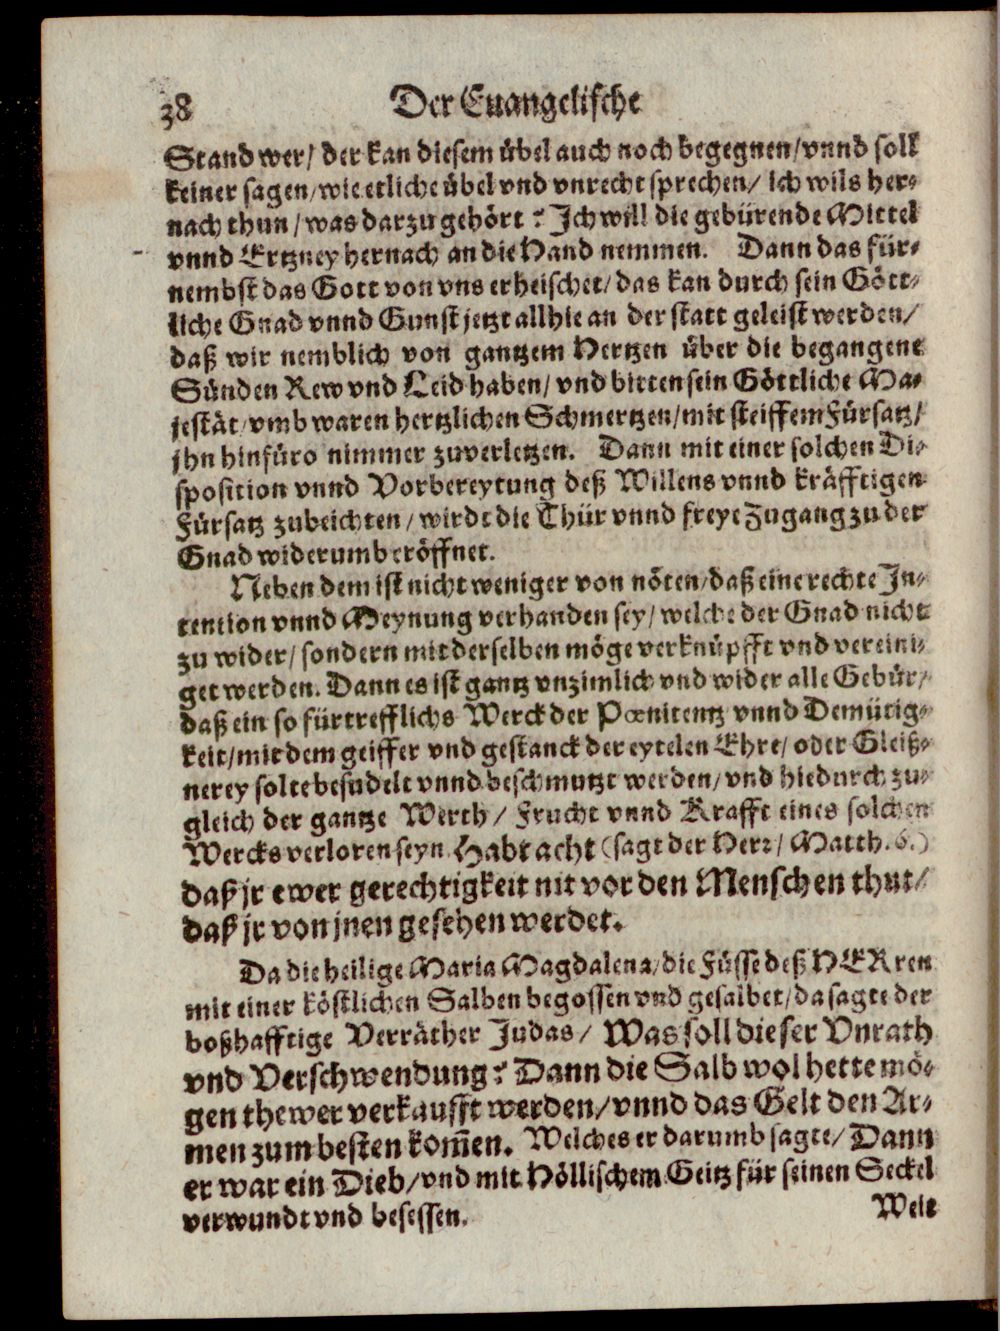 38 Der Euangelische
Stand wer/ der kan diesem übel auch noch begegnen/ vnnd soll
keiner sagen/ wie etliche übel vnd vnrecht sprechen/ ich wils her-
nach thun/ was darzu gehört? Ich will die gebürende Mittel
vnnd Ertzney hernach an die Hand nemmen. Dann das für-
nembst das Gott von vns erheischet/ das kan durch sein Gött-
liche Gnad vnnd Gunst jetzt allhie an der statt geleist werden/
daß wir nemblich von gantzem Hertzen über die begangene
Sünden Rew vnd Leid haben/ vnd bitten sein Göttliche Ma-
jestät/ vmb waren hertzlichen Schmertzen/ mit steiffem Fürsatz/
jhn hinfüro nimmer zuverletzen. Dann mit einer solchen Di-
sposition vnnd Vorbereytung deß Willens vnnd kräfftigen
Fürsatz zubeichten/ wirdt die Thür vnnd freye Zugang zu der
Gnad widerumb eröffnet.
Neben dem ist nicht weniger von nöten/ daß eine rechte In-
tention vnnd Meynung verhanden sey/ welche der Gnad nicht
zu wider/ sondern mit derselben möge verknüpfft vnd vereini-
get werden. Dann es ist gantz vnzimlich vnd wider alle Gebür/
daß ein so fürtrefflichs Werck der Pœnitentz vnnd Demütig-
keit/ mit dem geiffer vnd gestanck der eytelen Ehre/ oder Gleiß-
nerey solte besudelt vnnd beschmutzt werden/ vnd hiedurch zu-
gleich der gantze Werth/ Frucht vnnd Krafft eines solchen
Wercks verloren seyn. Habt acht (sagt der Herr/ Matth. 6.)
daß jr ewer gerechtigkeit nit vor den Menschen thut/
daß jr von jnen gesehen werdet.
Da die heilige Maria Magdalena/ die Füsse deß HERren
mit einer köstlichen Salben begossen vnd gesalbet/ da sagte der
boßhafftige Verräther Judas/ Was soll dieser Vnrath
vnd Verschwendung? Dann die Salb wol hette mö-
gen thewer verkaufft werden/ vnnd das Gelt den Ar-
men zum besten kom̃en. Welches er darumb sagte/ Dann
er war ein Dieb/ vnd mit Höllischem Geitz für seinen Seckel
verwundt vnd besessen.
Weit